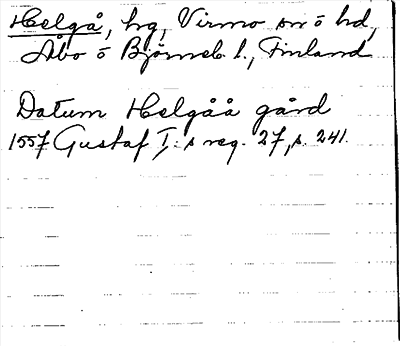 Helgå, hg, Virmo sn o hd,
Åbo o Björneb. l., Finland
Datum Helgåå gård
1557 Gustaf I:s reg. 27, s. 241.